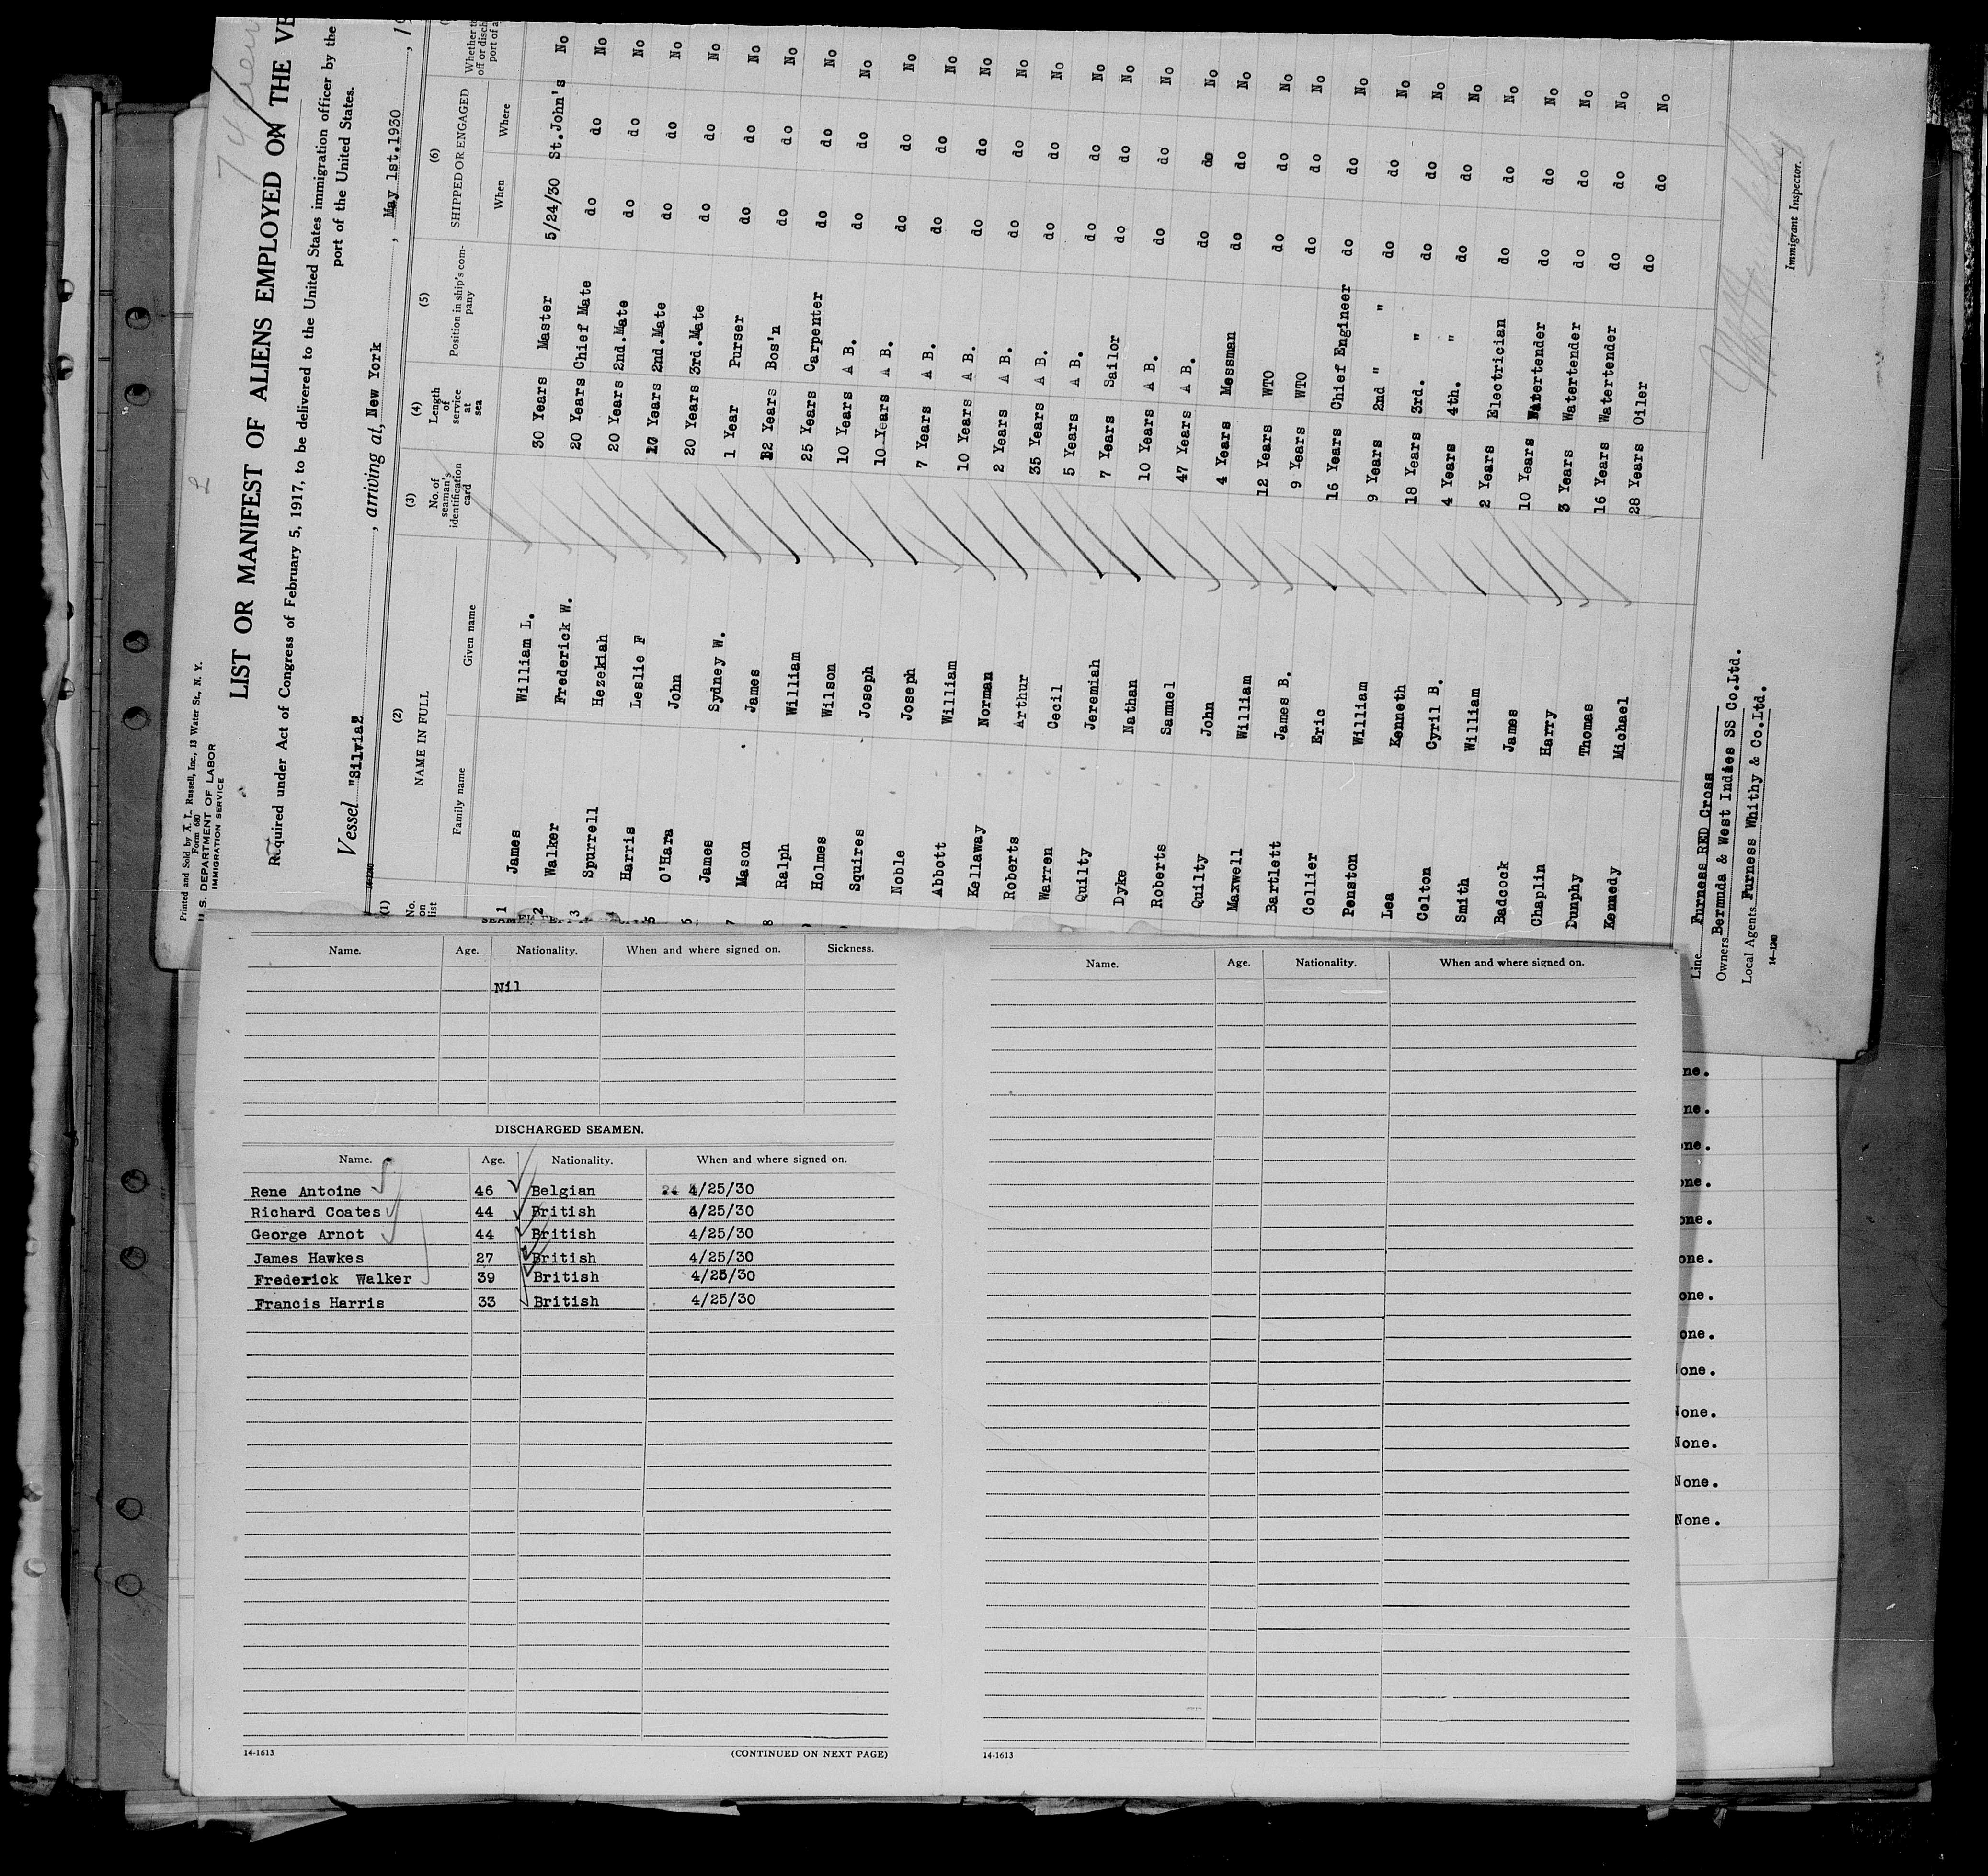 Printed and Sold by A. L. Russell, Inc., 13 Water St., N. Y.
Form 680
U. S. DEPARTMENT OF LABOR
IMMIGRATION SERVICE
2
LIST OR MANIFEST OF ALIENS EMPLOYED ON THE VE
Required under Act of Congress of February 5, 1917, to be delivered to the United States immigration officer by the
port of the United States.
Vessel "Silvia", arriving at, New York, May 1st.1930, 19
(1) (2) (3) (4) (5) (6)
No. on list NAME IN FULL No. of seaman's identification card Length of service at sea Position in ship's company SHIPPED OR ENGAGED
Family name Given name When Where
1 James William L. 30 Years Master 5/24/30 St.John's No
2 Walker Frederick W. 20 Years Chief Mate do do No
3 Spurrell Hezekiah 20 Years 2nd.Mate do do No
Harris Leslie F 17 Years 2nd.Mate do do No
5 O'Hara John 20 Years 3rd.Mate do do No
James Sydney W. 1 Year Purser do do No
7 Mason James 12 Years Bos'n do do No
8 Ralph William 25 Years Carpenter do do No
Holmes Wilson 10 Years A B. do do No
Squires Joseph 10 Years A B. do do No
Noble Joseph 7 Years A B. do do No
Abbott William 10 Years A B. do do No
Kellaway Norman 2 Years A B. do do No
Roberts Arthur 35 Years A B. do do No
Warren Cecil 5 Years A B. do do No
Quilty Jeremiah 7 Years Sailor do do No
Dyke Nathan 10 Years A B. do do No
Roberts Samuel 47 Years A B. do do No
Quilty John 4 Years Messman do do No
Maxwell William 12 Years WTO do do No
Bartlett James B. 9 Years WTO do do No
Collier Eric 16 Years Chief Engineer do do No
Penston William 9 Years 2nd " " do do No
Lea Kenneth 18 Years 3rd. " do do No
Colton Cyril B. 4 Years 4th. " do do No
Smith William 2 Years Electrician do do No
Badcock James 10 Years Watertender do do No
Chaplin Harry 3 Years Watertender do do No
Dunphy Thomas 16 Years Watertender do do No
Kennedy Michael 28 Years Oiler do do No
Line Furness RED Cross
Owners Bermuda & West Indies SS Co.Ltd.
Local Agents Furness Whithy & Co.Ltd.
14-1240
Immigrant Inspector.
Name. Age. Nationality. When and where signed on. Sickness.
Nil
DISCHARGED SEAMEN.
Name. Age. Nationality. When and where signed on.
Rene Antoine 46 Belgian 4/25/30
Richard Coates 44 British 4/25/30
George Arnot 44 British 4/25/30
James Hawkes 27 British 4/25/30
Frederick Walker 39 British 4/25/30
Francis Harris 33 British 4/25/30
14-1613 (CONTINUED ON NEXT PAGE)
Name. Age. Nationality. When and where signed on.
14-1613
ne.
ne.
one.
one.
one.
one.
one.
one.
one.
None.
None.
None.
None.